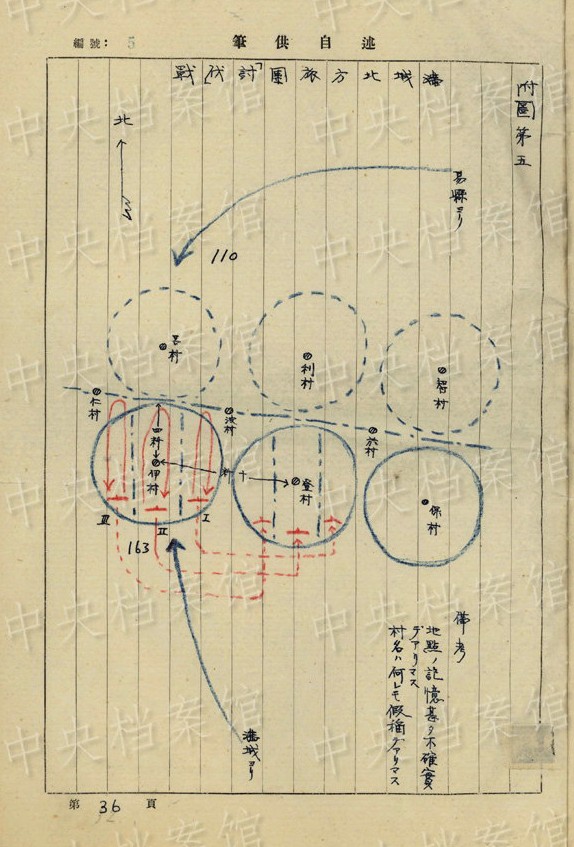 編號: 5
筆供自述
附圖第五
滿城北方旅團「討伐」戰
北
易縣ヨリ
110
利村
智村
仁村
波村
於村
伊村
登村
保村
Ⅲ
Ⅱ
Ⅰ
163
滿城ヨリ
備考
地點ノ記憶甚ダ不確實
デアリマス
村名ハ何レモ假稱デアリマス
第 36 頁
中央档案馆